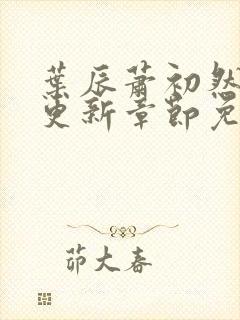 葉辰蕭初然
更新章節免
茆大春